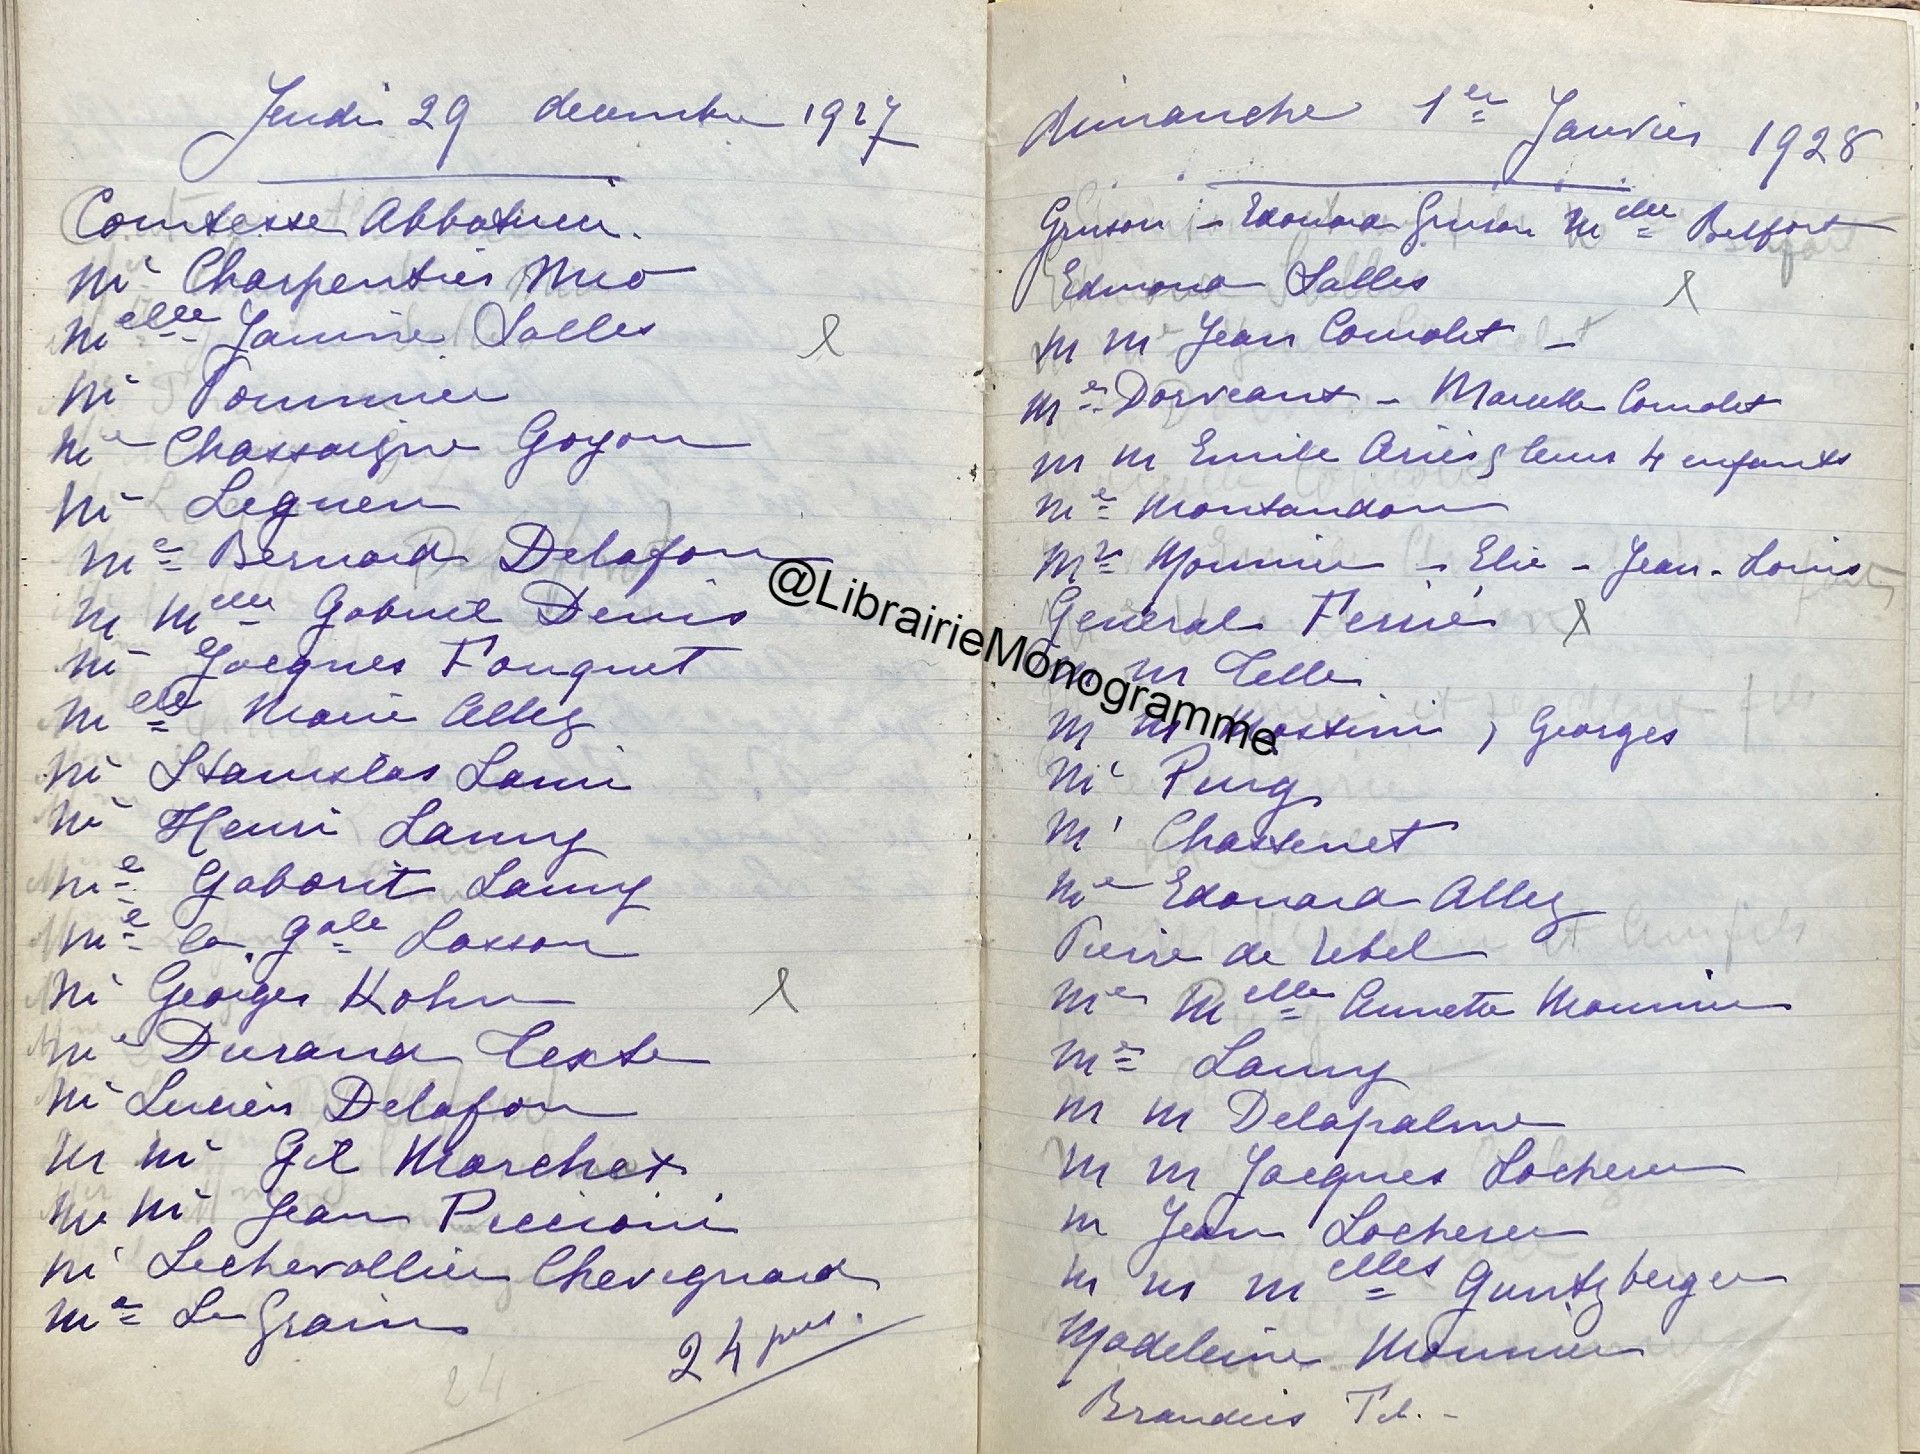 Jeudi 29 decembre 1927
Comtesse Abbatucci.
Me Charpentier Mio
Melle Janine Salles
Me Pommier
Me Chassaigne Goyon
Me Leguen
Me Bernard Delafon
M Melle Gabriel Denis
Me Jacques Fouquet
Melle Marie Allez
Me Stanislas Lami
Me Henri Lamy
Me Gaborit Lamy
Me la Gale Lasson
Me Georges Kohn
Me Durand Texte
Me Lucien Delafon
M Me Gil Marchex
M Me Jean Piccioni
Me Lechevallier Chevignard
Me Le Grain
24 pers.
24
dimanche 1er Janvier 1928
Gruson - Edouard Gruson Melle Belfort
Edmond Salles
M Me Jean Comolet -
Me Dorveaux - Marcelle Comolet
M M Emile Ariès, leurs 4 enfants
Me Montandon
Me Monnier - Elie - Jean-Louis
Général Ferrié
M M Telle
M M Mostini, Georges
Me Purg
M Chassenet
Me Edouard Allez
Pierre de Lebel
Me Melle Annette Monnier
Me Lamy
M M Delapalme
M M Jacques Locherer
M Jean Locherer
M M Melles Guntzberger
Madeleine Monnier
Brandeis Tel. -
@LibrairieMonogramme